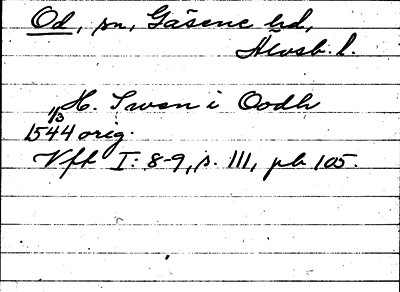 Od, sn, Gäsene hd,
Älvsb. l.
H. Swen i Oodh
1/3
1544 orig.
Vft I: 8-9, s. 111, pb 105.